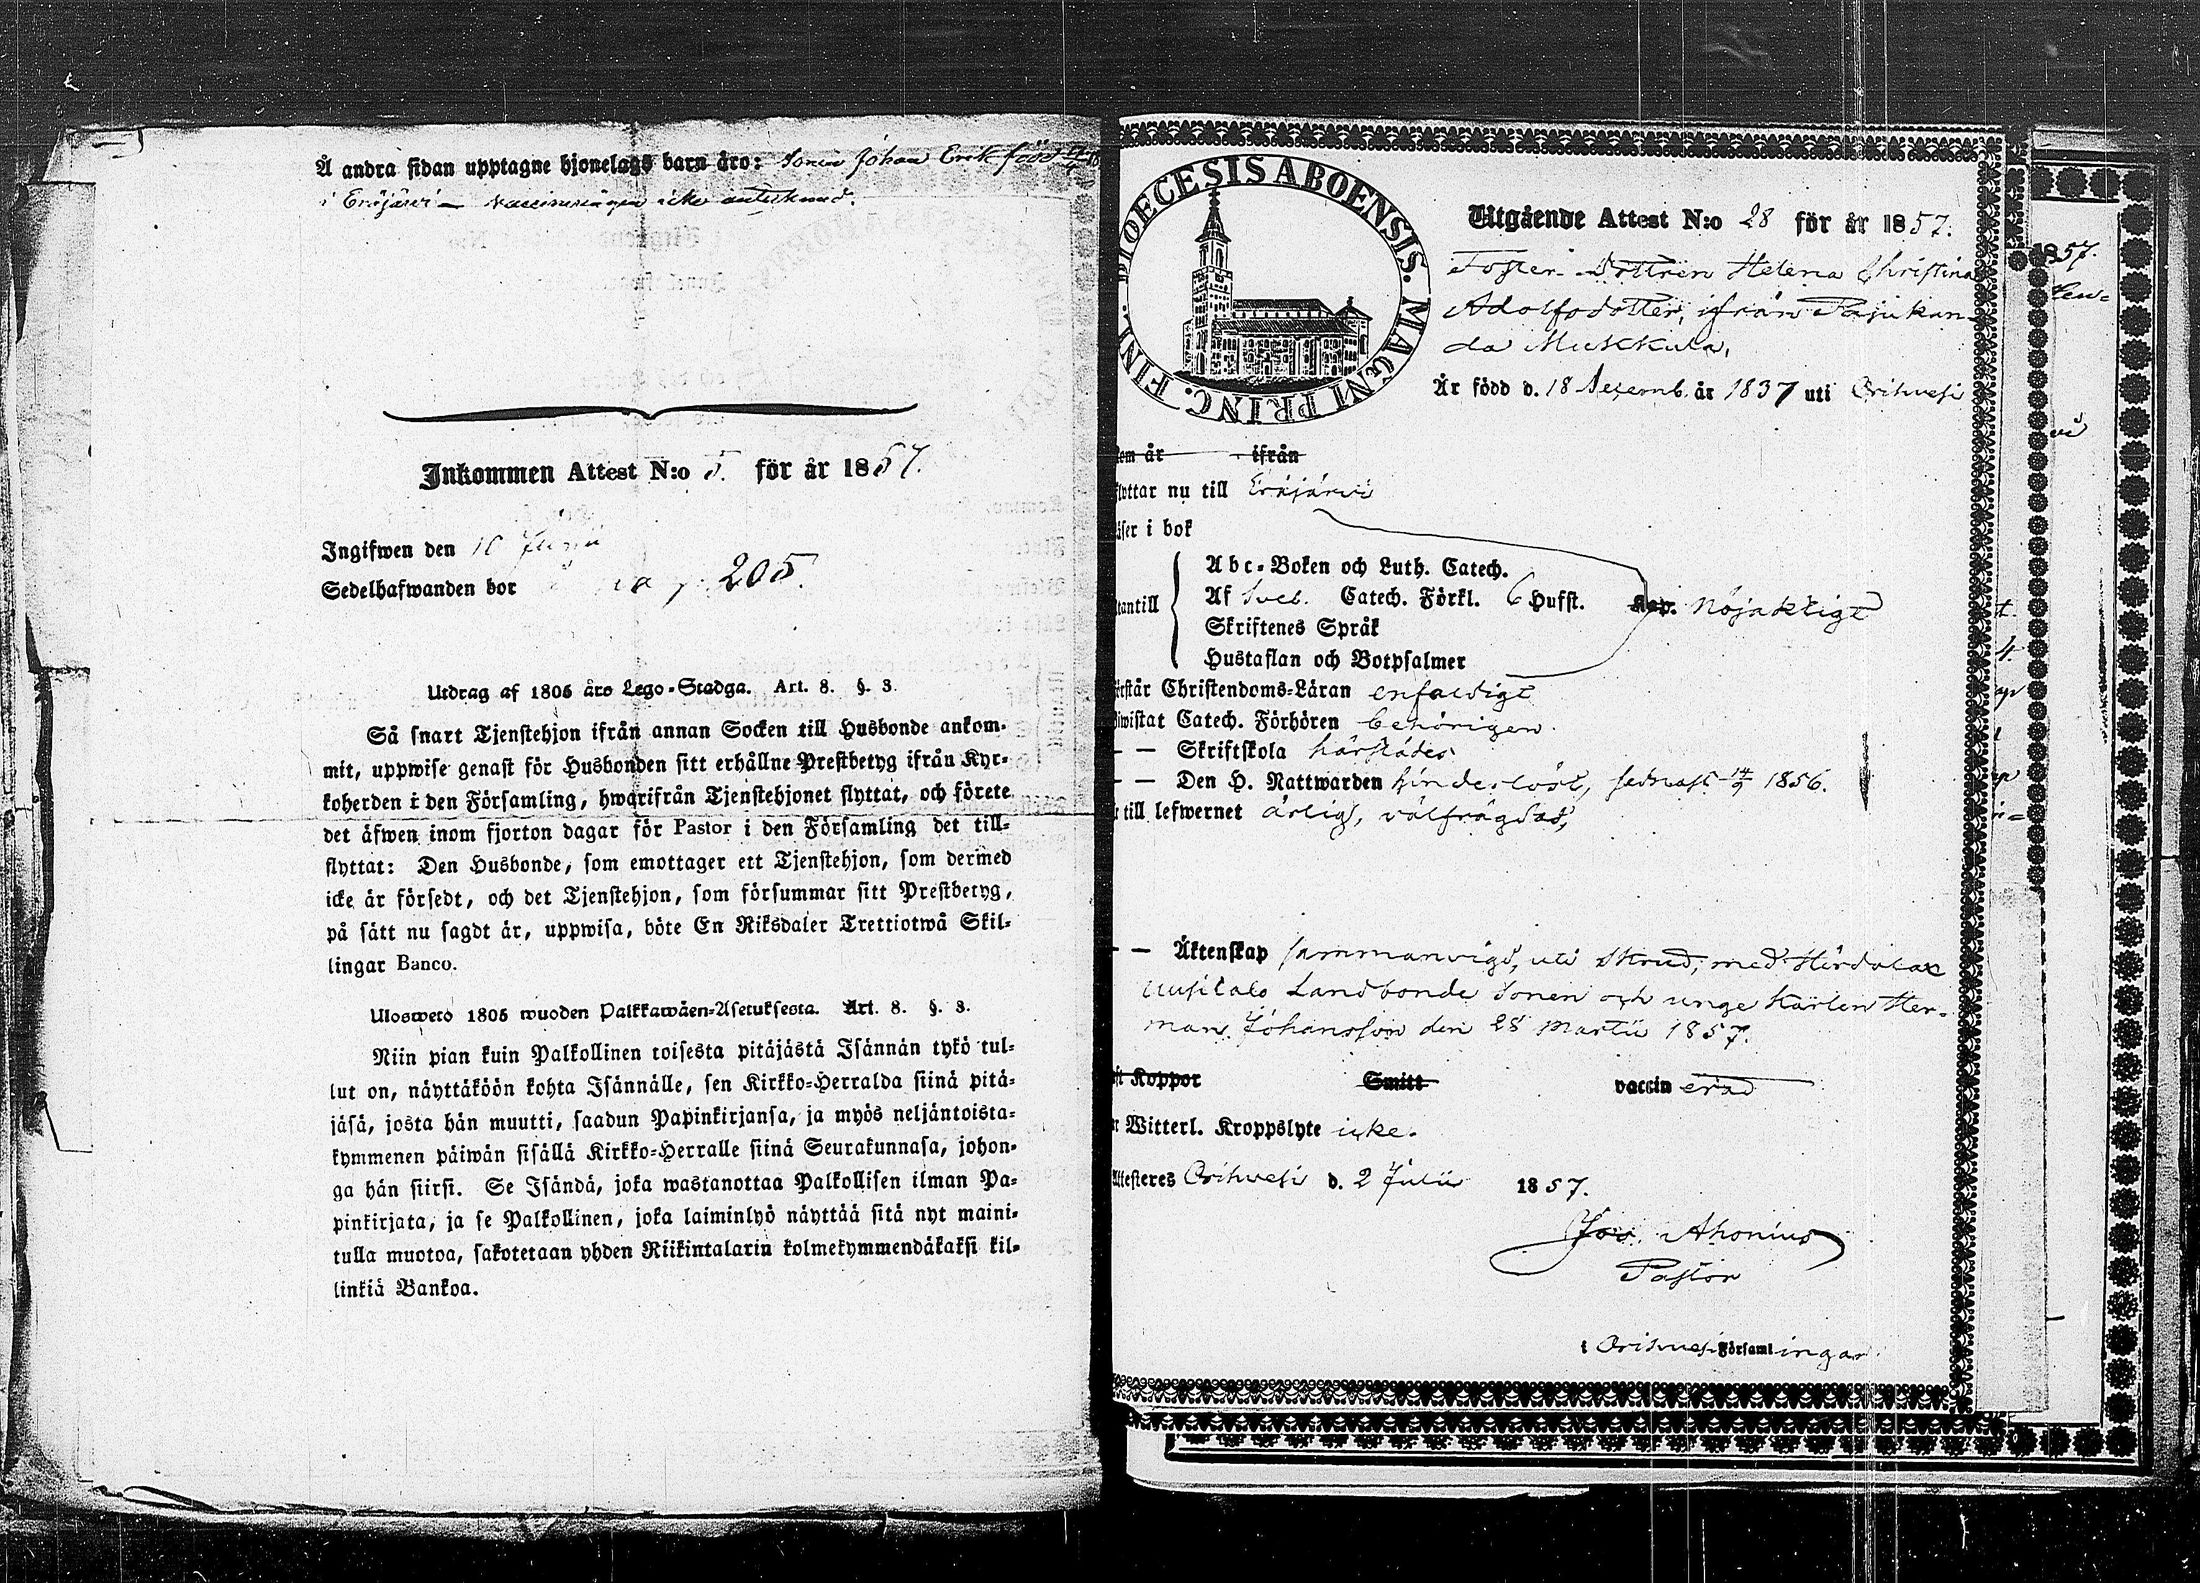 Å andra sidan upptagne hjonelags barn äro: Sonen Johan Erik född
i Eräjärvi – vaccineringen icke antecknad.
Inkommen Attest N:o 5. för år 1857.
Ingifwen den 10 Junii
Sedelhafwanden bor pag. 205.
Utdrag af 1805 års Lego-Stadga. Art. 8. §. 3.
Så snart Tjenstehjon ifrån annan Socken till Husbonde ankom-
mit, uppwise genast för Husbonden sitt erhållne Prestbetyg ifrån Kyr-
koherden i den Församling, hwarifrån Tjenstehjonet flyttat, och förete
det äfwen inom fjorton dagar för Pastor i den Församling det till-
flyttat: Den Husbonde, som emottager ett Tjenstehjon, som dermed
icke är försedt, och det Tjenstehjon, som försummar sitt Prestbetyg,
på sätt nu sagdt är, uppwisa, böte En Riksdaler Trettiotwå Skil-
lingar Banco.
Uloswetö 1805 wuoden Palkkawäen-Asetuksesta. Art. 8. §. 3.
Niin pian kuin Palkollinen toisesta pitäjästä Isännän tykö tul-
lut on, näyttäköön kohta Isännälle, sen Kirkko-Herralda siinä pitä-
jäsä, josta hän muutti, saadun Papinkirjansa, ja myös neljäntoista-
kymmenen päiwän sisällä Kirkko-Herralle siinä Seurakunnasa, johon-
ga hän siirsi. Se Isändä, joka wastanottaa Palkollisen ilman Pa-
pinkirjata, ja se Palkollinen, joka laiminlyö näyttää sitä nyt maini-
tulla muotoa, sakotetaan yhden Riikintalarin kolmekymmendäkaksi kil-
linkiä Bankoa.
DIOECESIS ABOENSIS. MAGNI PRINC. FINL.
Utgående Attest N:o 28 för år 1857.
Foster-Dottren Helena Christina
Adolfsdotter, ifrån Pajukan-
da Mukkula,
Är född d. 18 Decemb. år 1837 uti Orihvesi
kom år ifrån
flyttar nu till Eräjärvi
läser i bok
Abc-Boken och Luth. Catech.
utantill Af Sveb. Catech. Förkl. 6 Hufst. Kap. nöjaktigt
Skriftenes Språk
Hustaflan och Botpsalmer
förstår Christendoms-Läran enfaldigt
biwistat Catech. Förhören behörigen.
— — Skriftskola härstädes
— — Den H. Nattwarden hinderlöst, sednast 14/9 1856.
till lefwernet ärlig, välfrägdad,
— — Äktenskap sammanvigd, uti Stud, med Hirdolax
Uusitalo Landbonde Sonen och unge Karlen Her-
man Johansson den 28 Martii 1857.
Koppor Smitt vaccinerad
Witterl. Kroppslyte icke.
Attesteres Orihvesi d. 2 Julii 1857.
Jos. Ahonius
Pastor
i Orihvesi Församlingar.
1857.